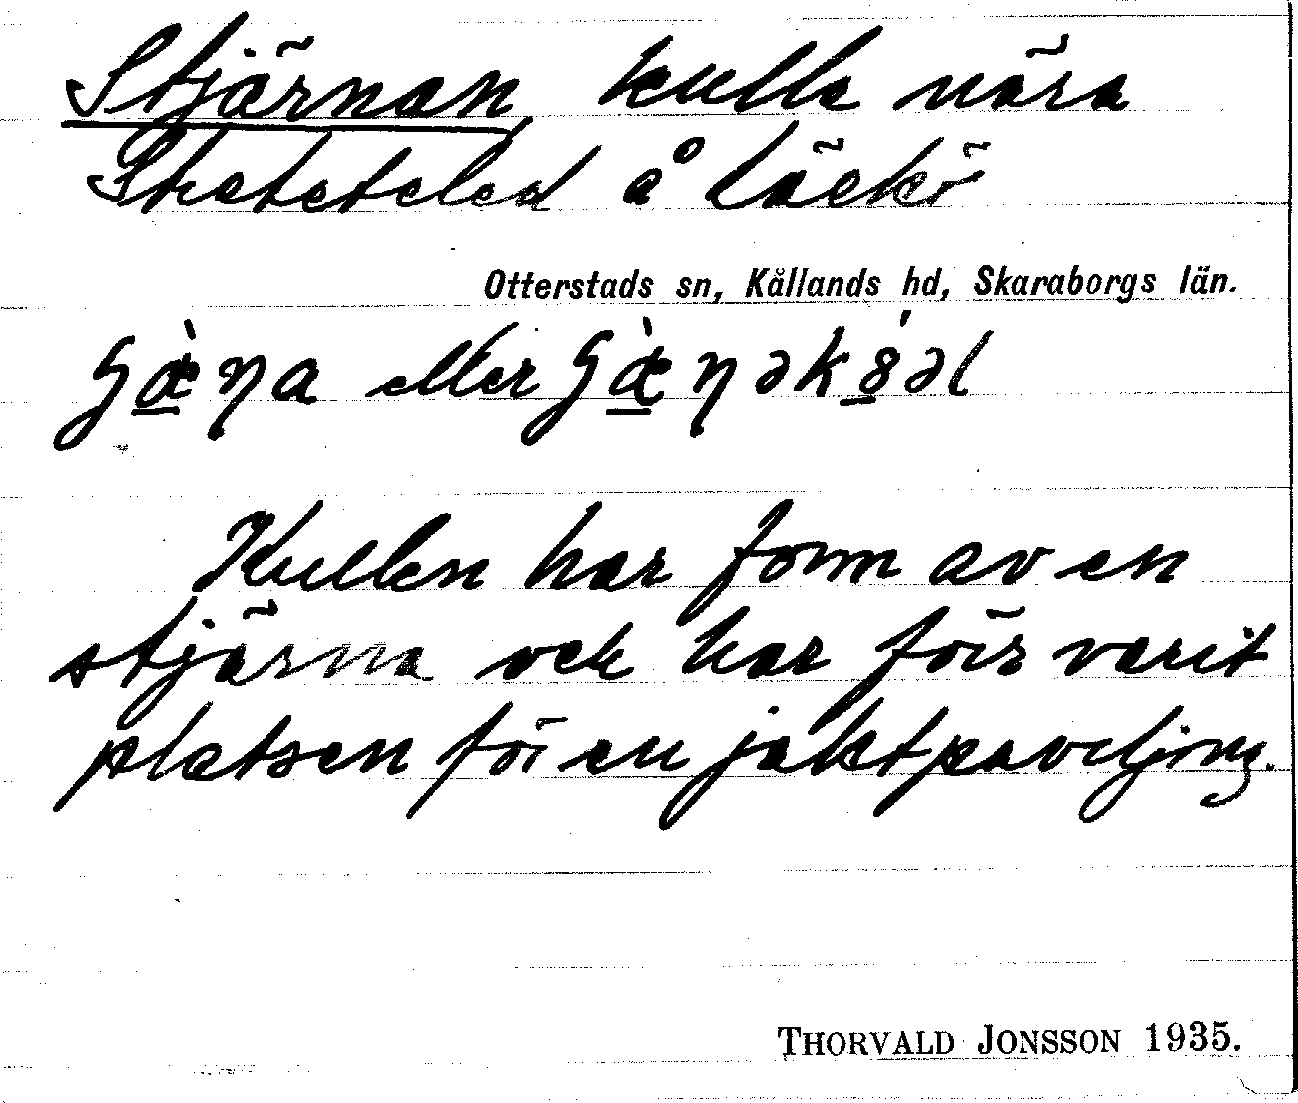 Stjärnan, kulle nära
Skateteled å Läckö
Otterstads sn, Kållands hd, Skaraborgs län.
eller
Kullen har form av en
stjärna ock har förr varit
platsen för en jaktpaviljong.
THORVALD JONSSON 1935.